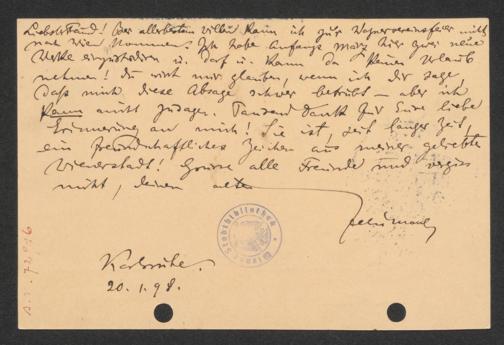 Liebster Freund! Beim allerbesten Willen kann ich zur Wagnervereinsfeier nicht
nach Wien kommen. Ich habe Anfangs März hier zwei neue
Werke einzustudiren u. darf u. kann da keinen Urlaub
nehmen! Du wirst mir glauben, wenn ich dir sage,
daß mich diese Absage schwer betrübt – aber ich
kann nicht zusagen. Tausend Dank für Eure liebe
Erinnerung an mich! Sie ist, seit langer Zeit,
ein freundschaftliches Zeichen aus meiner geliebten
Wienerstadt! Grüsse alle Freunde und vergiss
nicht, deinen alten
Felix Mottl
Wiener Stadtbibliothek
Karlsruhe.
20.1.98.